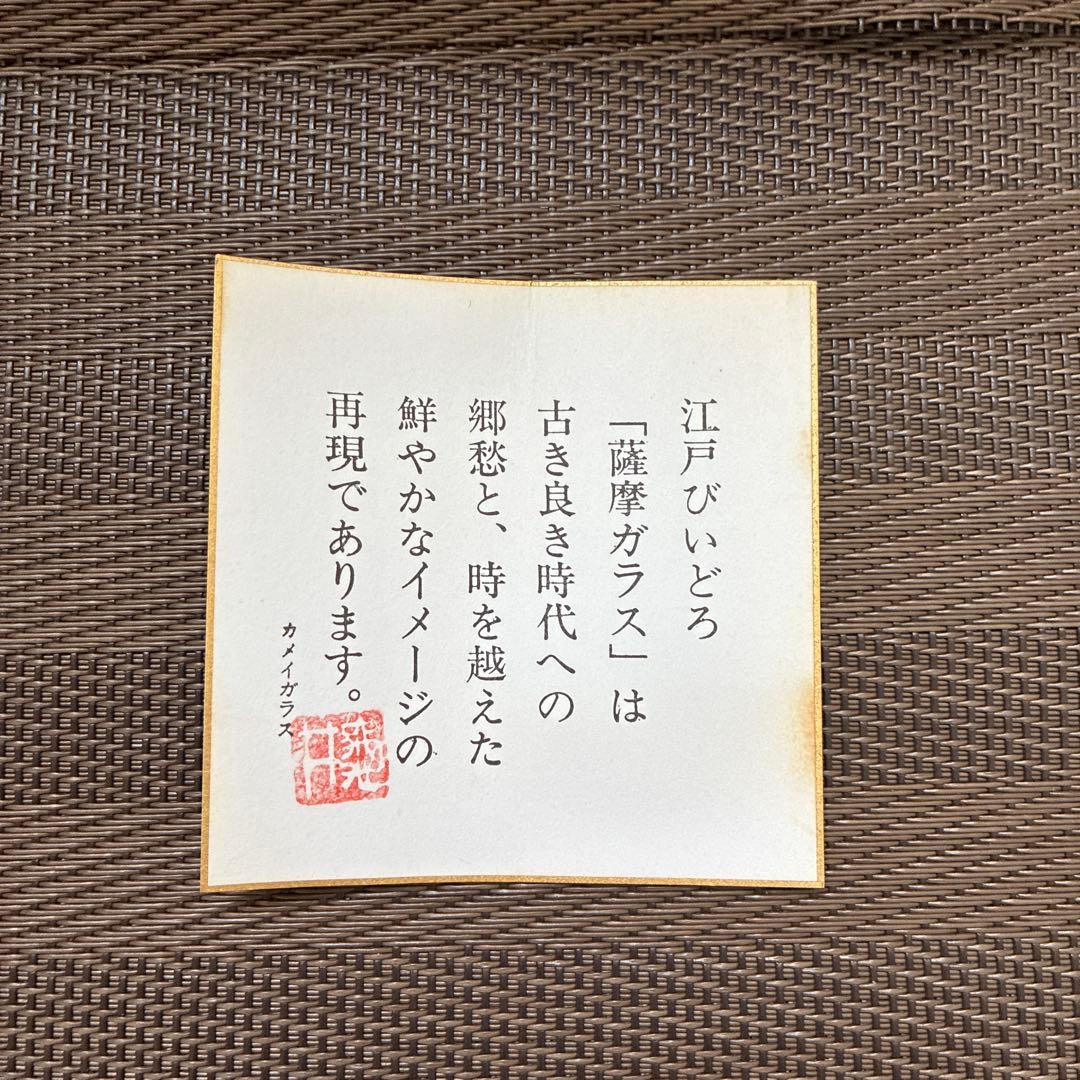 江戸びいどろ
「薩摩ガラス」は
古き良き時代への
郷愁と、時を越えた
鮮やかなイメージの
再現であります。
カメイガラス